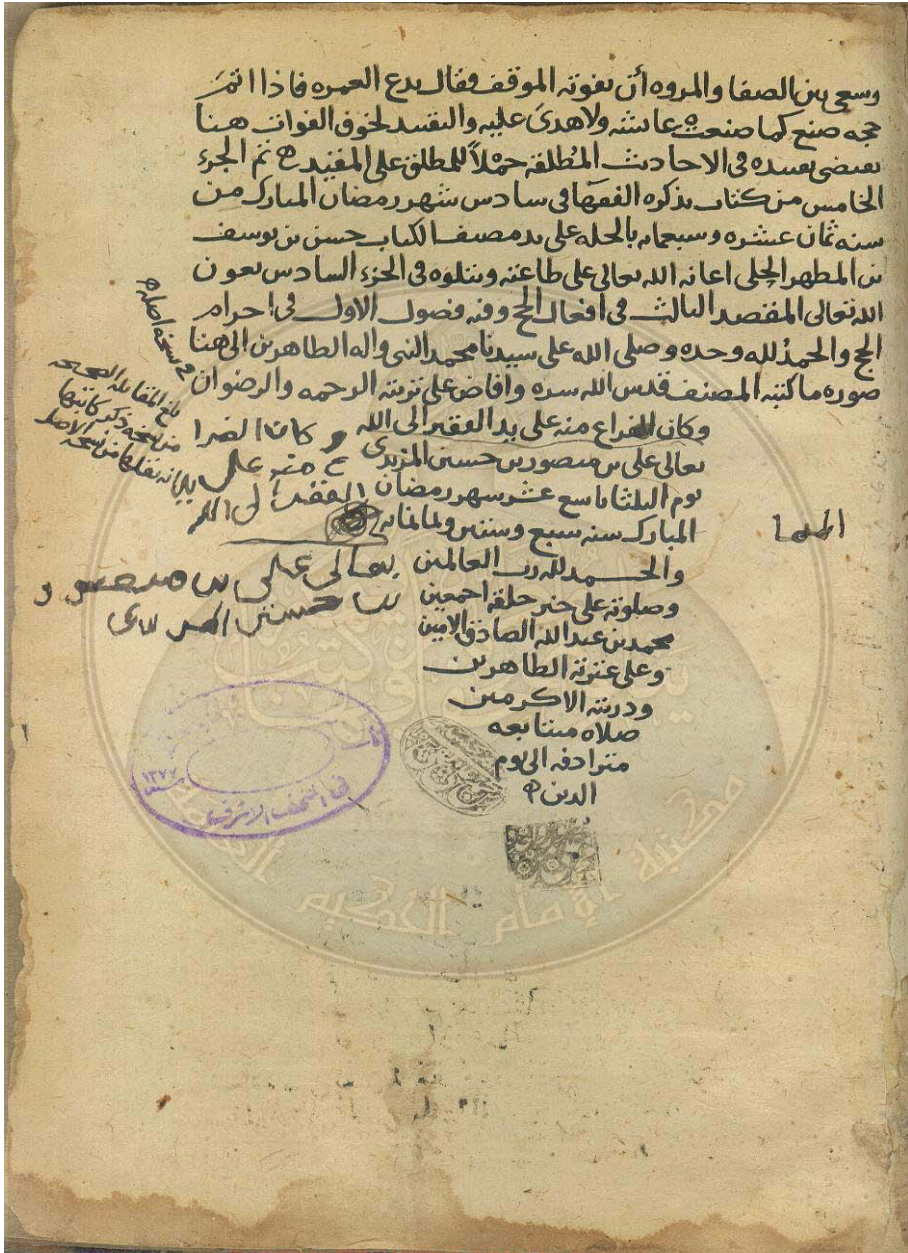 وسعى بين الصفا والمروه أن تفوته الموقف فقال يدع العمره فاذا اتم
حجه صنع كما صنعت عائشه ولا هدى عليه والتقييد لخوف الفوات هنا
يقتضى تقييده فى الاحاديث المُطلقه حملاً للمطلق على المقيد تم الجزء
الخامس من كتاب تذكره الفقها فى سادس شهر رمضان المبارك من
سنه ثمان عشره وسبعمايه بالحله على يد مصنف الكتاب حسن بن يوسف
بن المطهر الحلى اعانه الله تعالى على طاعته ويتلوه فى الجزء السادس بعون
الله تعالى المقصد الثالث فى افعال الحج وفيه فصول الاول فى احرام
الحج والحمد لله وحده وصلى الله على سيدنا محمد النبى واله الطاهرين الى هنا
صوره ما كتبه المصنف قدس الله سره وافاض على تربته الرحمه والرضوان
وكان الفراغ منه على يد الفقير الى الله
تعالى على بن منصور بن حسين المزيدى
يوم الثلثا تاسع عشر شهر رمضان
المبارك سنه سبع وستين وثمانمايه
والحمد لله رب العالمين
وصلوته على خير خلقه اجمعين
محمد بن عبدالله الصادق الامين
وعلى عترته الطاهرين
وذريته الاكرمين
صلاه متتابعه
مترادفه الى يوم
الدين
بلغ المقابله الصحيحه
من نسخه ذكر كاتبها
انه نقلها من نسخه الاصل
وكان الفرا
غ منه على يد
الفقير الى الله
تعالى على بن منصور
بن حسين المزيدى
فى النجف الاشرف
١٣٧٧
مكتبة الإمام الحكيم العامة